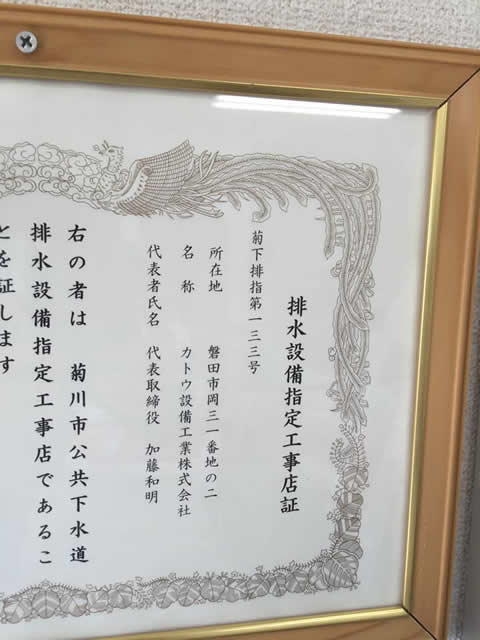 排水設備指定工事店証
菊下排指第一三三号
所在地 磐田市岡三一番地の二
名称 カトウ設備工業株式会社
代表者氏名 代表取締役 加藤和明
右の者は 菊川市公共下水道
排水設備指定工事店であるこ
とを証します